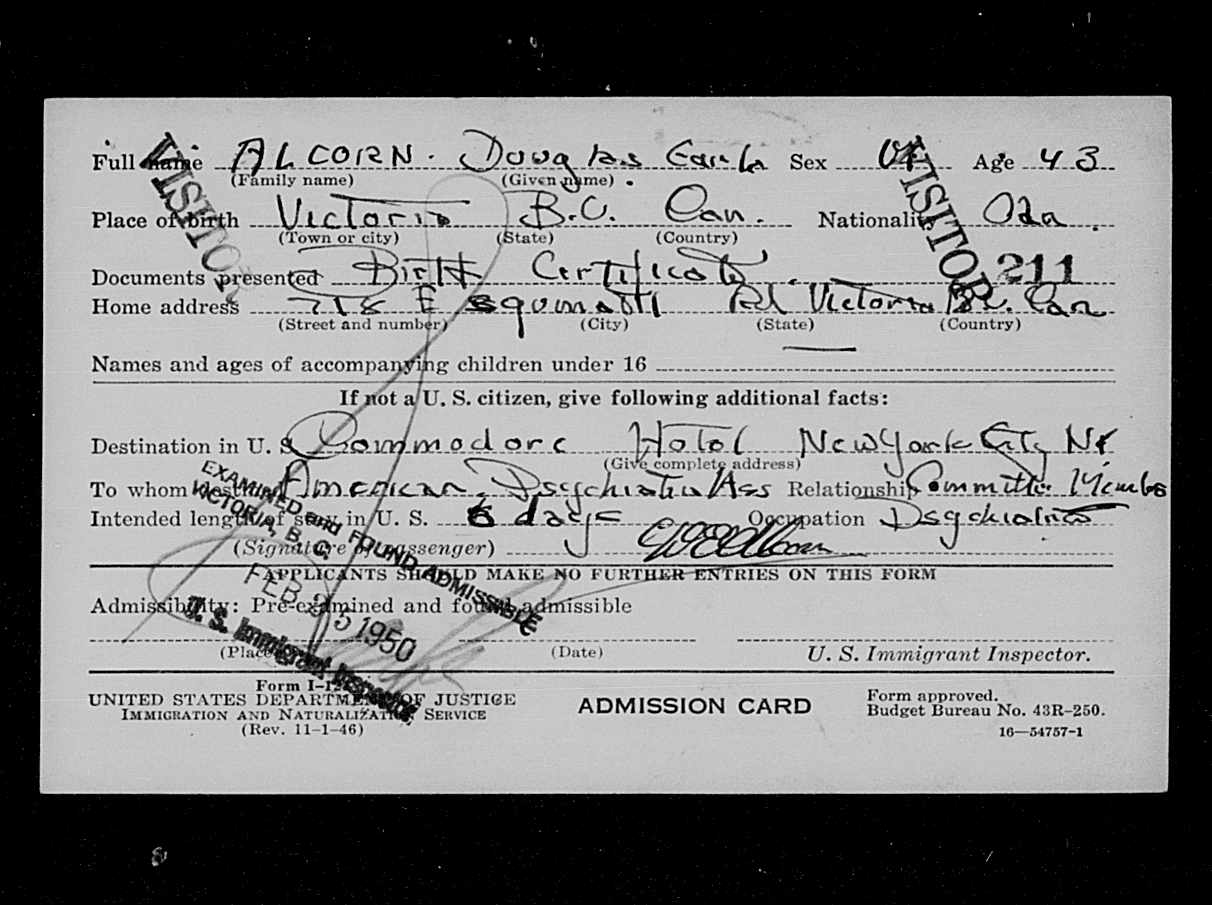 Full name ALCORN. Douglas Earle Sex M Age 43
(Family name) (Given name)
VISITOR VISITOR
Place of birth Victoria B.C. Can. Nationality Can.
(Town or city) (State) (Country)
211
Documents presented Birth Certificate.
Home address 718 Esquimalt Rd Victoria B.C. Can
(Street and number) (City) (State) (Country)
Names and ages of accompanying children under 16 —
If not a U. S. citizen, give following additional facts:
Destination in U. S. Commodore Hotel New York City NY
(Give complete address)
To whom destined American Psychiatric Ass Relationship Committee Member
Intended length of stay in U. S. 6 days Occupation Psychiatrist
(Signature of passenger)
APPLICANTS SHOULD MAKE NO FURTHER ENTRIES ON THIS FORM
Admissibility: Pre-examined and found admissible
EXAMINED and FOUND ADMISSIBLE
VICTORIA, B. C.
FEB 25 1950
U. S. Immigrant Inspector
(Place) (Date) U. S. Immigrant Inspector.
Form I-
UNITED STATES DEPARTMENT OF JUSTICE
IMMIGRATION AND NATURALIZATION SERVICE
(Rev. 11-1-46)
ADMISSION CARD
Form approved.
Budget Bureau No. 43R-250.
16—54757-1